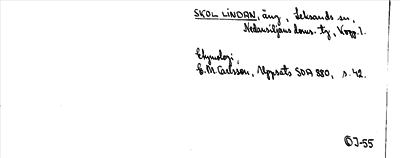 SKOL LINDAN, äng, Leksands sn,
Nedansiljans doms. tg, Kopp. l.
Etymologi,
E. M. Carlsson, Uppsats SOA 880, s. 42.
ÖJ-55